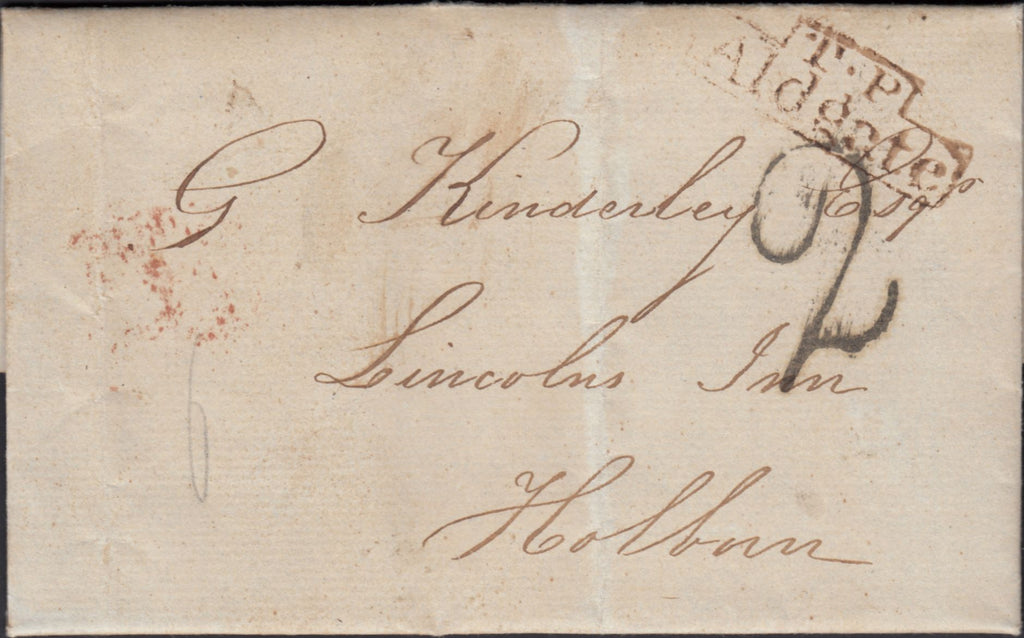 T.P
Aldgate
2
G Kinderley Esqr
Lincolns Inn
Holborn